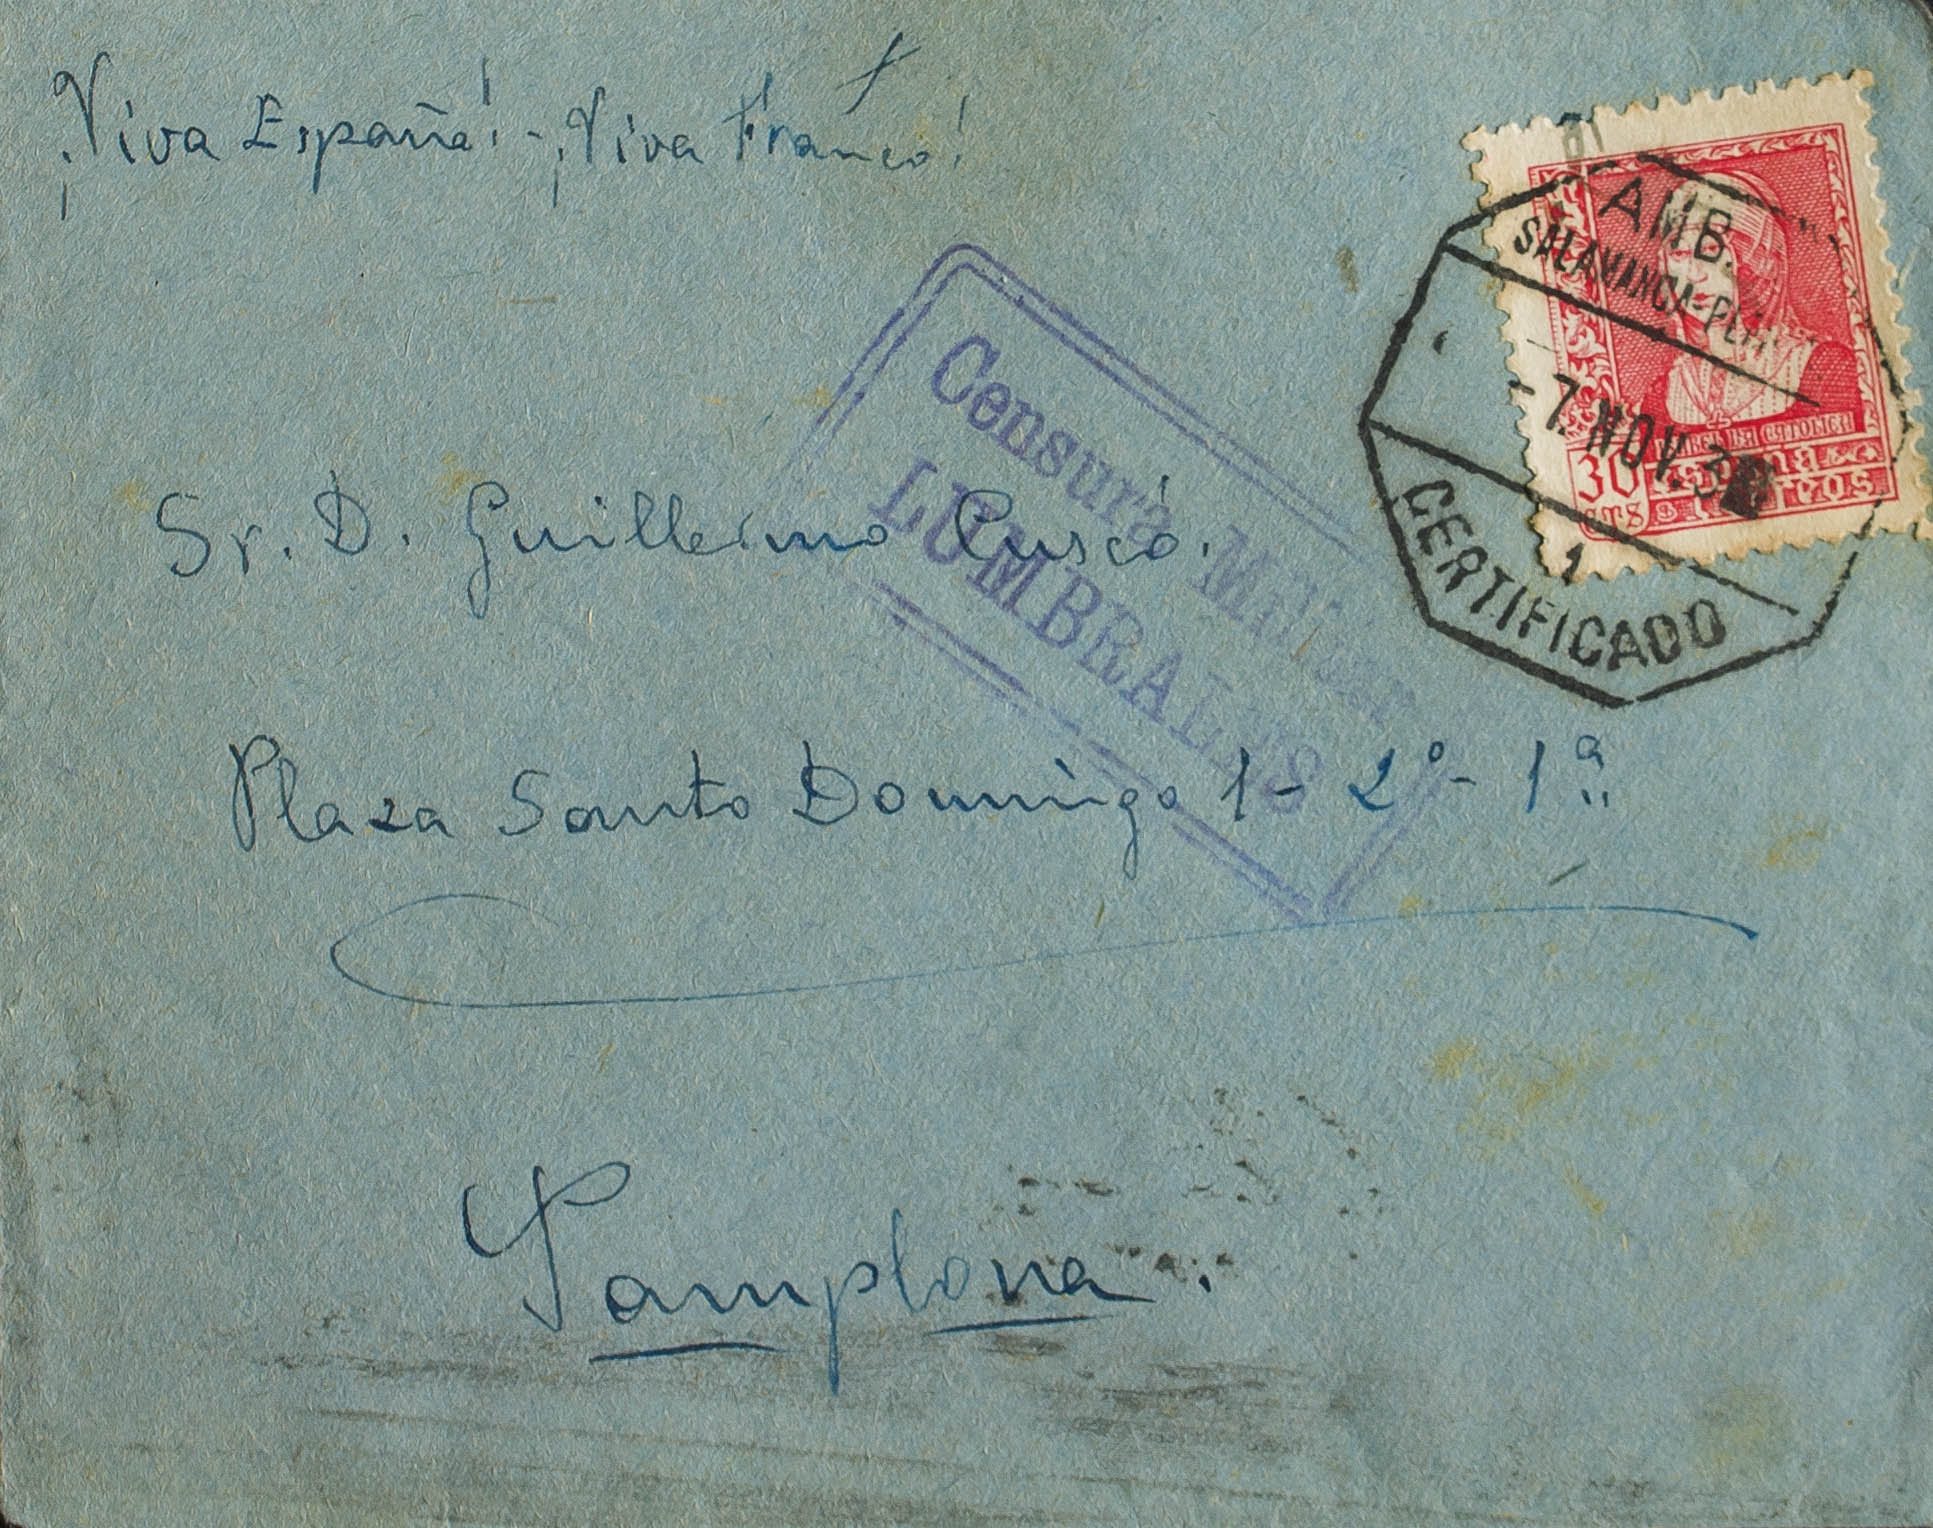 ¡Viva España! - ¡Viva Franco!
AMB.
SALAMANCA-
-7. NOV. 3
1
CERTIFICADO
ISABEL LA CATOLICA
30 España
CTS Correos
Censura Militar
LUMBRALES
Sr. D. Guillermo Cuscó.
Plaza Santo Domingo 1- 2º- 1ª
Pamplona.